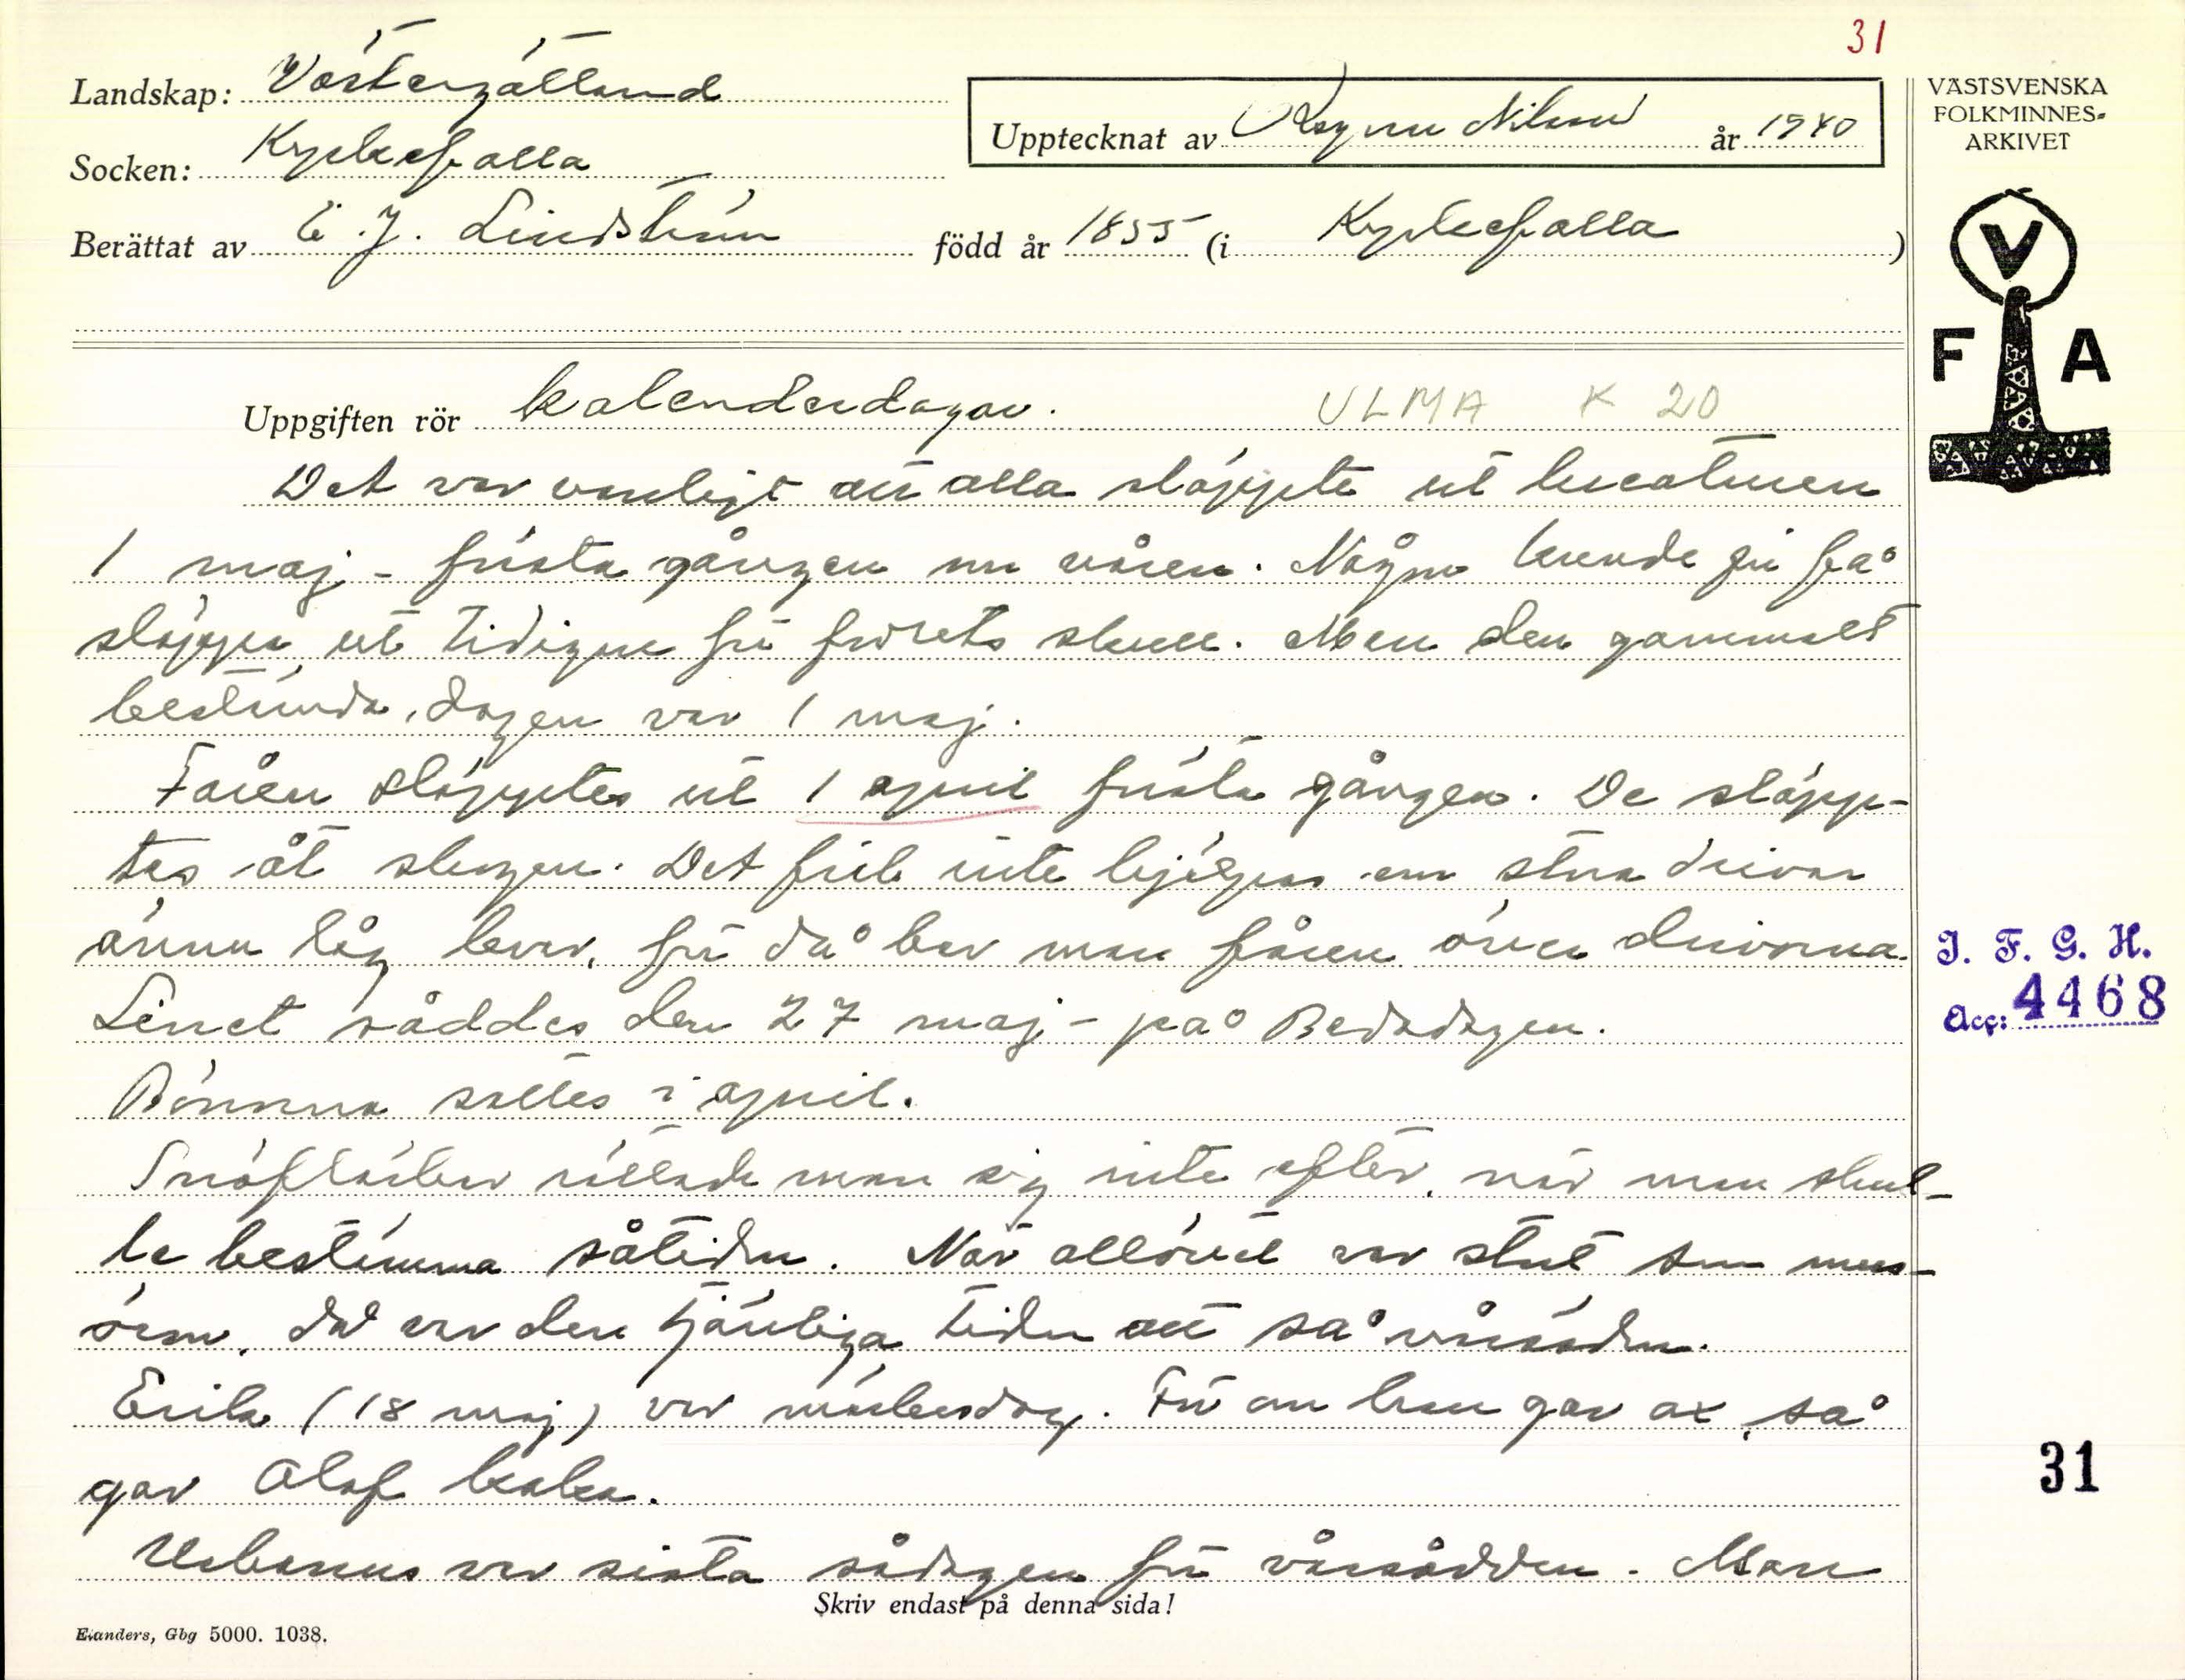 31
Landskap: Västergötland
Socken: Kyrkefalla
Upptecknat av Ragnar Nilsson år 1940
Berättat av E. J. Lindström född år 1855 (i Kyrkefalla)
VÄSTSVENSKA
FOLKMINNES-
ARKIVET
V
F A
Uppgiften rör kalenderdagar. ULMA K 20
Det var vanligt att alla släppte ut kreaturen
1 maj - första gången om våren. Några kunde ju få
släppa ut tidigare för frosets skull. Men den gammalt
bestämda dagen var 1 maj.
Fåren släpptes ut 1 april första gången. De släpp-
tes åt skogen. Det fick inte hjälpas om stora drivor
ännu låg kvar, för då bar man fåren över drivorna.
Linet såddes den 27 maj - på Bedadagen.
Bönorna sattes i april.
Snöfläckar rättade man sig inte efter, när man skul-
le bestämma såtiden. När allövet var stort som mus-
öron, då var den tjänliga tiden att så vårsäden.
Erik (18 maj) var märkesdag. För om han gav ax, så
gav Olof kaka.
Urbanus var sista sådagen för vårsådden. Man
Skriv endast på denna sida!
Elanders, Gbg 5000. 1038.
I. F. G. H.
Acc: 4468
31